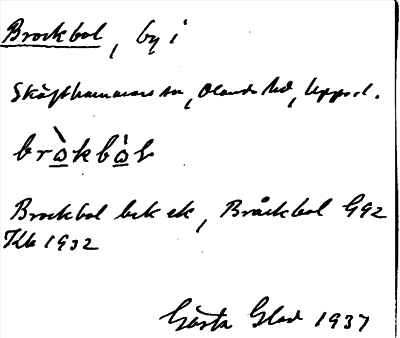 Brockbol, by i
Skäfthammars sn, Olands hd, Uppsl.
bròkból
Brockbol bek ek, Bråckbol G92
Klb 1932
Gösta Glad 1937